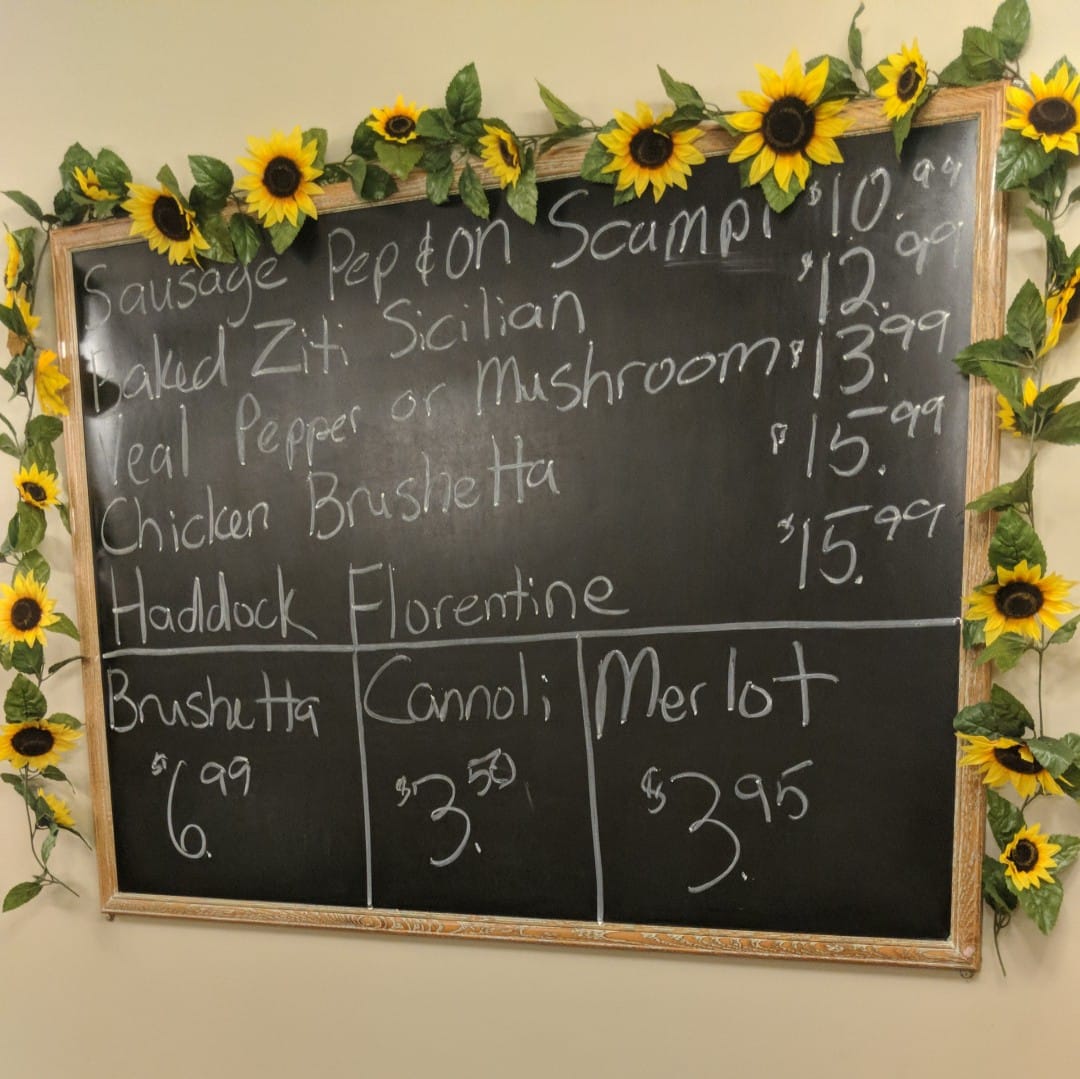 Sausage Pep & on Scampi $10.99
Baked Ziti Sicilian $12.99
Veal Pepper or Mushroom $13.99
Chicken Brushetta $15.99
Haddock Florentine $15.99
Brushetta
$6.99
Cannoli
$3.50
Merlot
$3.95